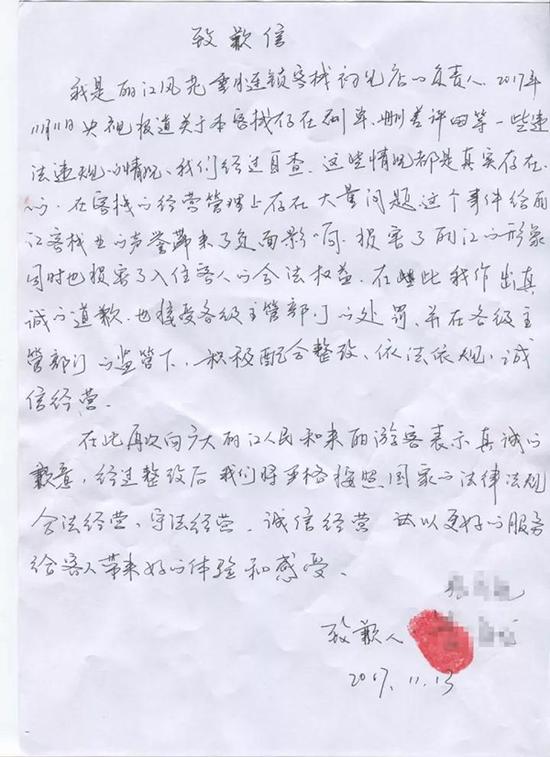 致歉信
我是丽江风花雪月连锁客栈初见店的负责人,2017年
11月11日央视报道关于本客栈存在刷单、删差评的等一些违
法违规的情况、我们经过自查、这些情况都是真实存在
的、在客栈的经营管理上存在大量问题,这个事件给丽
江客栈业的声誉带来了负面影响、损害了丽江的形象
同时也损害了入住客人的合法权益、在此我作出真
诚的道歉、也接受各级主管部门的处罚、并在各级主
管部门的监管下、积极配合整改、依法依规,诚
信经营.
在此再次向广大丽江人民和来丽游客表示真诚的
歉意,经过整改后我们将严格按照国家的法律法规
合法经营、守法经营、诚信经营 并以更好的服务
给客人带来好的体验和感受、
致歉人
2017.11.13